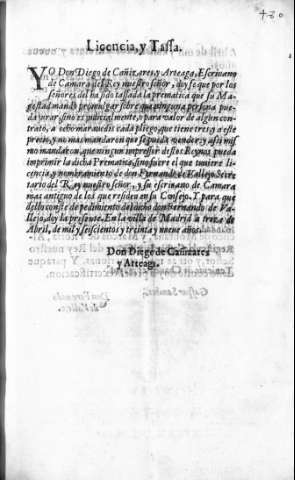 Licencia, y Tassa.
YO Don Diego de Cañizares y Arteaga, Escriuano
de Camara del Rey nuestro señor, doy fe que por los
señores del ha sido tassada la prematica que su Ma-
gestad mandò promulgar sobre que ninguna persona pue-
da jurar, sino es judicialmente, o para valor de algun con-
trato, a ocho marauedis cada pliego, que tiene tres, y a este
precio, y no mas mandaron que se pueda vender: y assi mis
mo mandaron, que ningun impressor destos Reynos pueda
imprimir la dicha Prematica, sino fuere el que tuuiere li-
cencia, y nombramiento de don Fernando de Vallejo Secre
tario del Rey nuestro señor, y su escriuano de Camara
mas antiguo de los que residen en su Consejo. Y para que
dello conste de pedimiento del dicho don Fernando de Va-
llejo, doy la presente. En la villa de Madrid a treze de
Abril, de mil y seiscientos y treinta y nueue años.
Don Diego de Cañizares
y Arteaga.